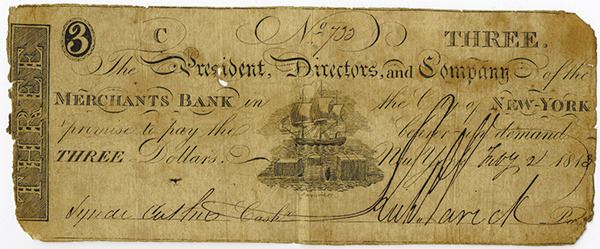 THREE
3 C No 733 THREE.
The President, Directors, and Company of the
MERCHANTS BANK in the City of NEW-YORK
promise to pay the bearer on demand
THREE Dollars. New York 2 181
Lynde Catlin Cashr